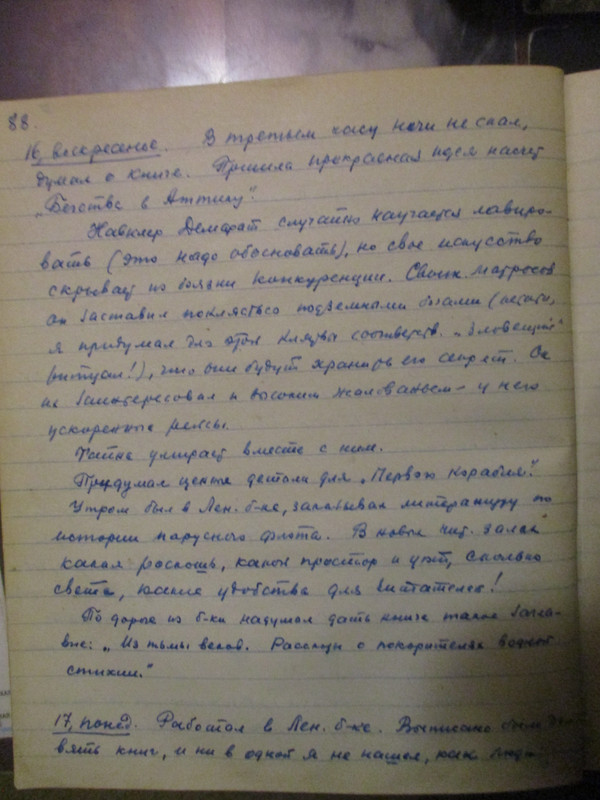 88.
16, воскресенье. В третьем часу ночи не спал,
думал о книге. Пришла прекрасная идея насчет
„Бегства в Аттику“.
Навклер Демарат случайно научается лавиро-
вать (это надо обосновать), но свое искусство
скрывает из боязни конкуренции. Своих матросов
он заставил поклясться подземными богами (кстати,
я придумал для этой клятвы соответств. „Зловещий“
ритуал!), что они будут хранить его секрет. Он
их заинтересовал и высоким жалованьем – у него
ускоренные рейсы.
Тайна умирает вместе с ним.
Придумал ценные детали для „Первого корабля“.
Утром был в Лен. б-ке, заказывал литературу по
истории парусного флота. В новых чит. залах
какая роскошь, какой простор и уют, сколько
света, какие удобства для читателей!
По дороге из б-ки надумал дать книге такое загла-
вие: „Из тьмы веков. Рассказы о покорителях водной
стихии.“
17, понед. Работал в Лен. б-ке. Выписано было де-
вять книг, и ни в одной я не нашел, как